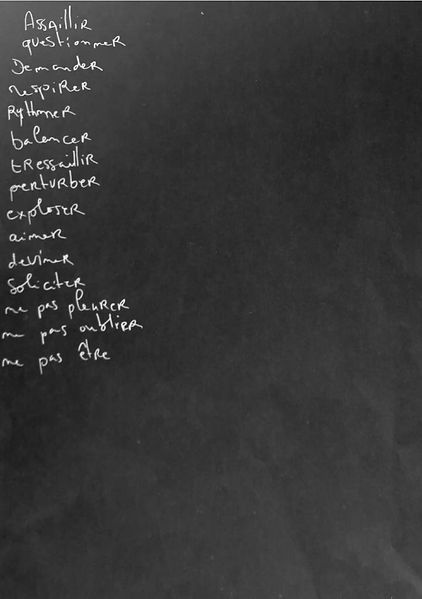 Assaillir
questionner
Demander
respirer
Rythmer
balancer
tressaillir
perturber
exploser
aimer
deviner
Soliciter
ne pas pleurer
ne pas oublier
ne pas être